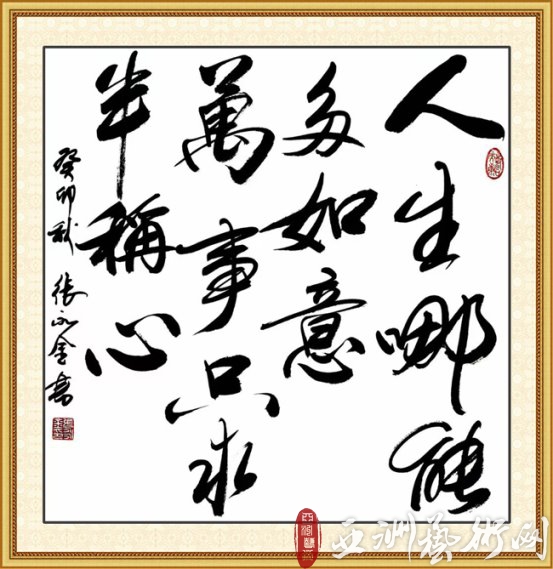 人生哪能
多如意
萬事只求
半稱心
癸卯秋 張永金書
亚洲藝術网